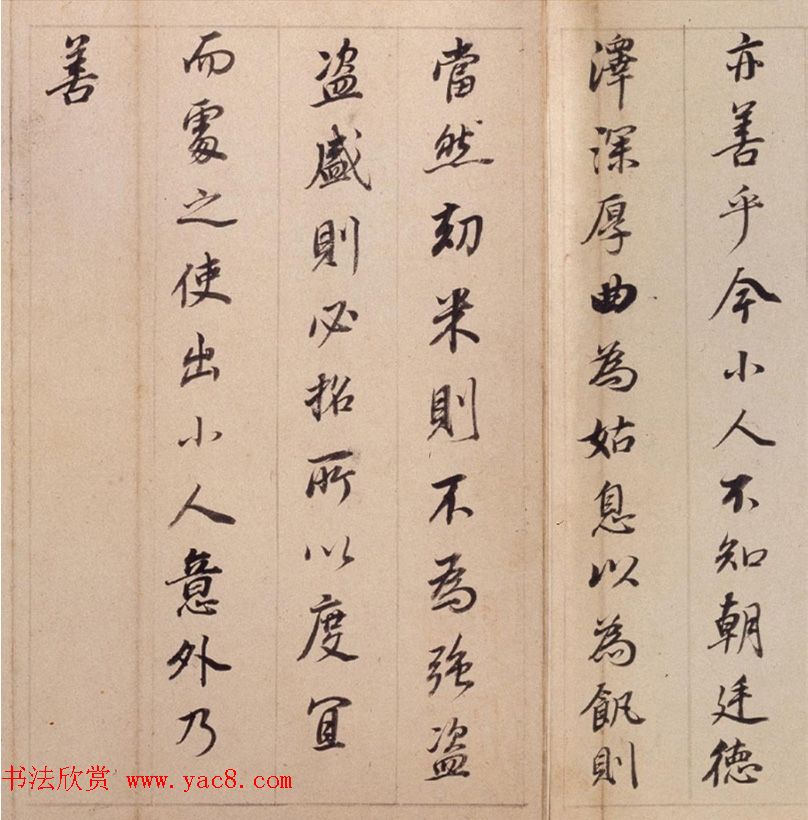 亦善乎今小人不知朝廷德
澤深厚曲為姑息以為飢則
當然劫米則不為強盜
盜盛則必招所以度宜
而處之使出小人意外乃
善
书法欣赏 www.yac8.com